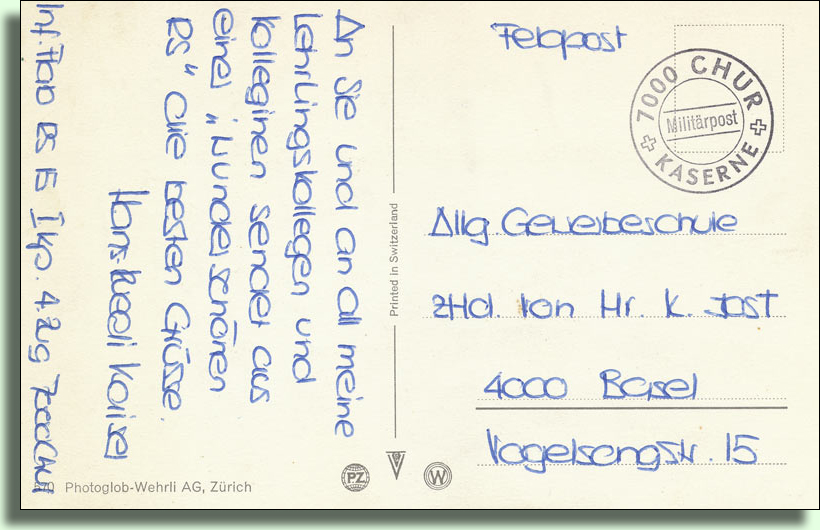 An Sie und an all meine
Lehrlingskollegen und
Kolleginen sendet aus
einer „wunderschönen
RS" die besten Grüsse
Hans-Ruedi
Inf. RS II Kp. 4. Zug 7000 Chur
Feldpost
7000 CHUR
Militärpost
KASERNE
Allg. Gewerbeschule
zHd. von Hr. K. Jost
4000 Basel
Vogelsangstr. 15
Printed in Switzerland
Photoglob-Wehrli AG, Zürich
PZ
W